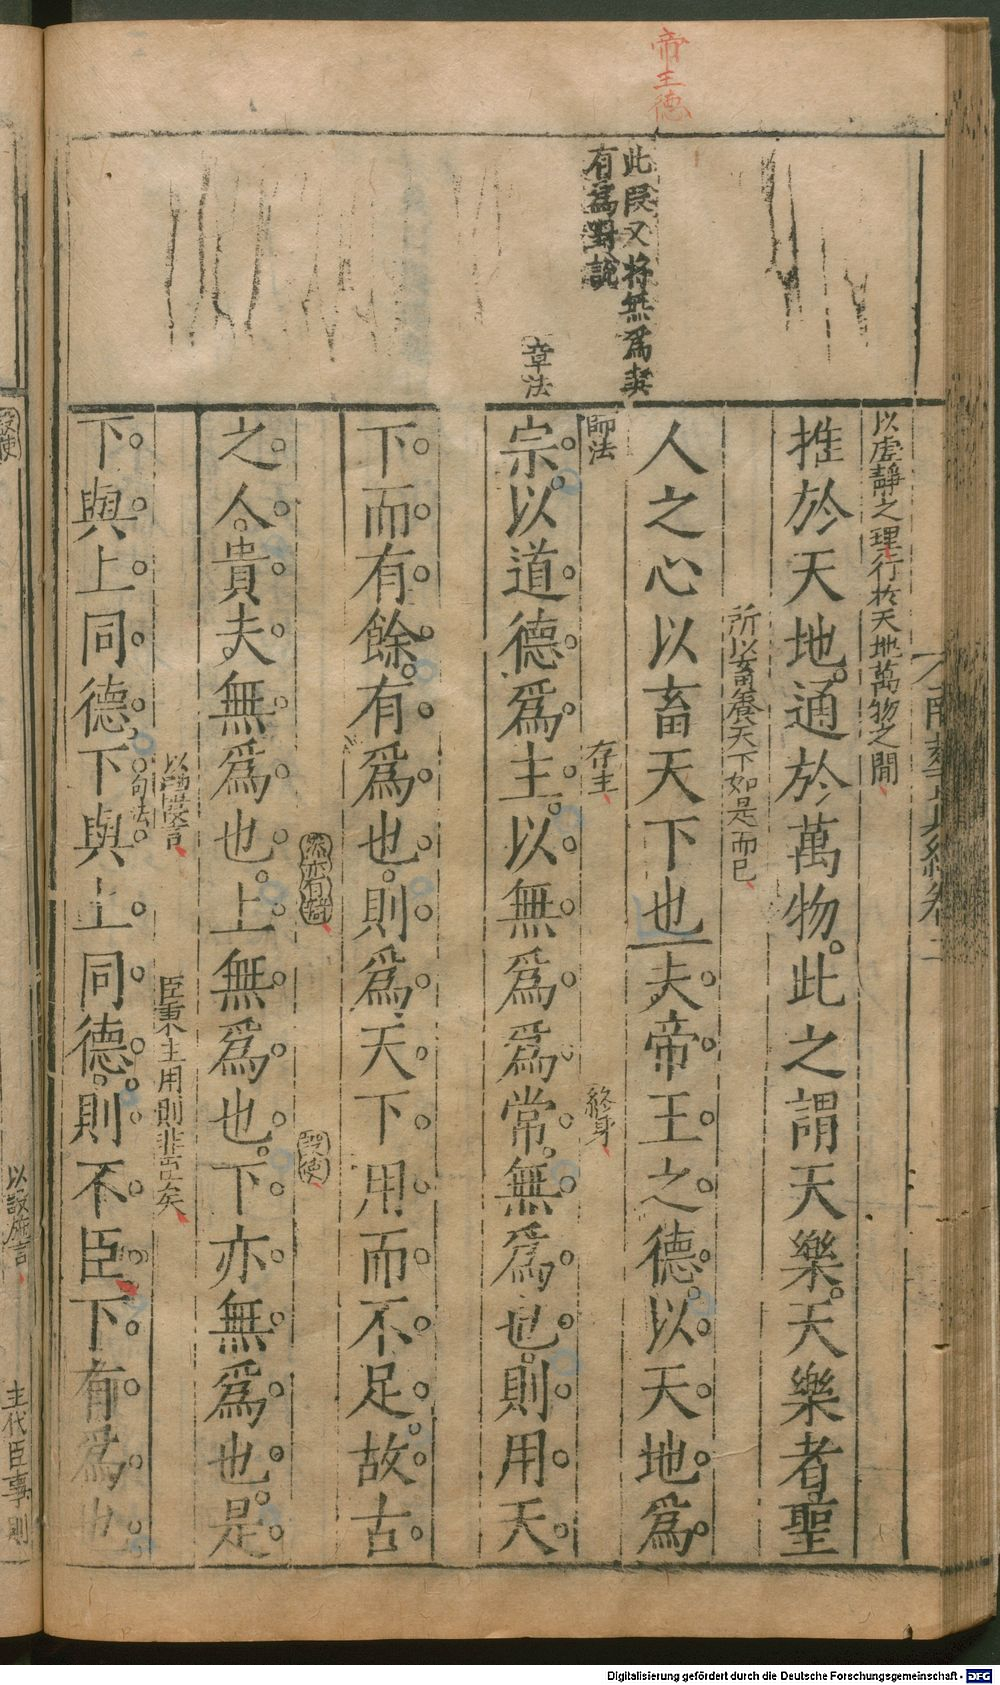 帝王德
此段又將無爲與
有爲對說
章法
南華真經卷二
以虛靜之理行於天地萬物之間
推於天地。通於萬物。此之謂天樂。天樂者。聖
所以畜養天下如是而已
人之心以畜天下也夫帝王之德。以天地爲
師法
存主
終身
宗。以道德爲主。以無爲爲常。無爲也。則用天
下而有餘。有爲也。則爲天下用而不足。故古
設使
之人。貴夫無爲也。上無爲也。下亦無爲也。是
句法
臣秉主用則非臣矣
下與上同德。下與上同德。則不臣。下有爲也
設使
以設施言
主代臣事則
Digitalisierung gefördert durch die Deutsche Forschungsgemeinschaft - DFG